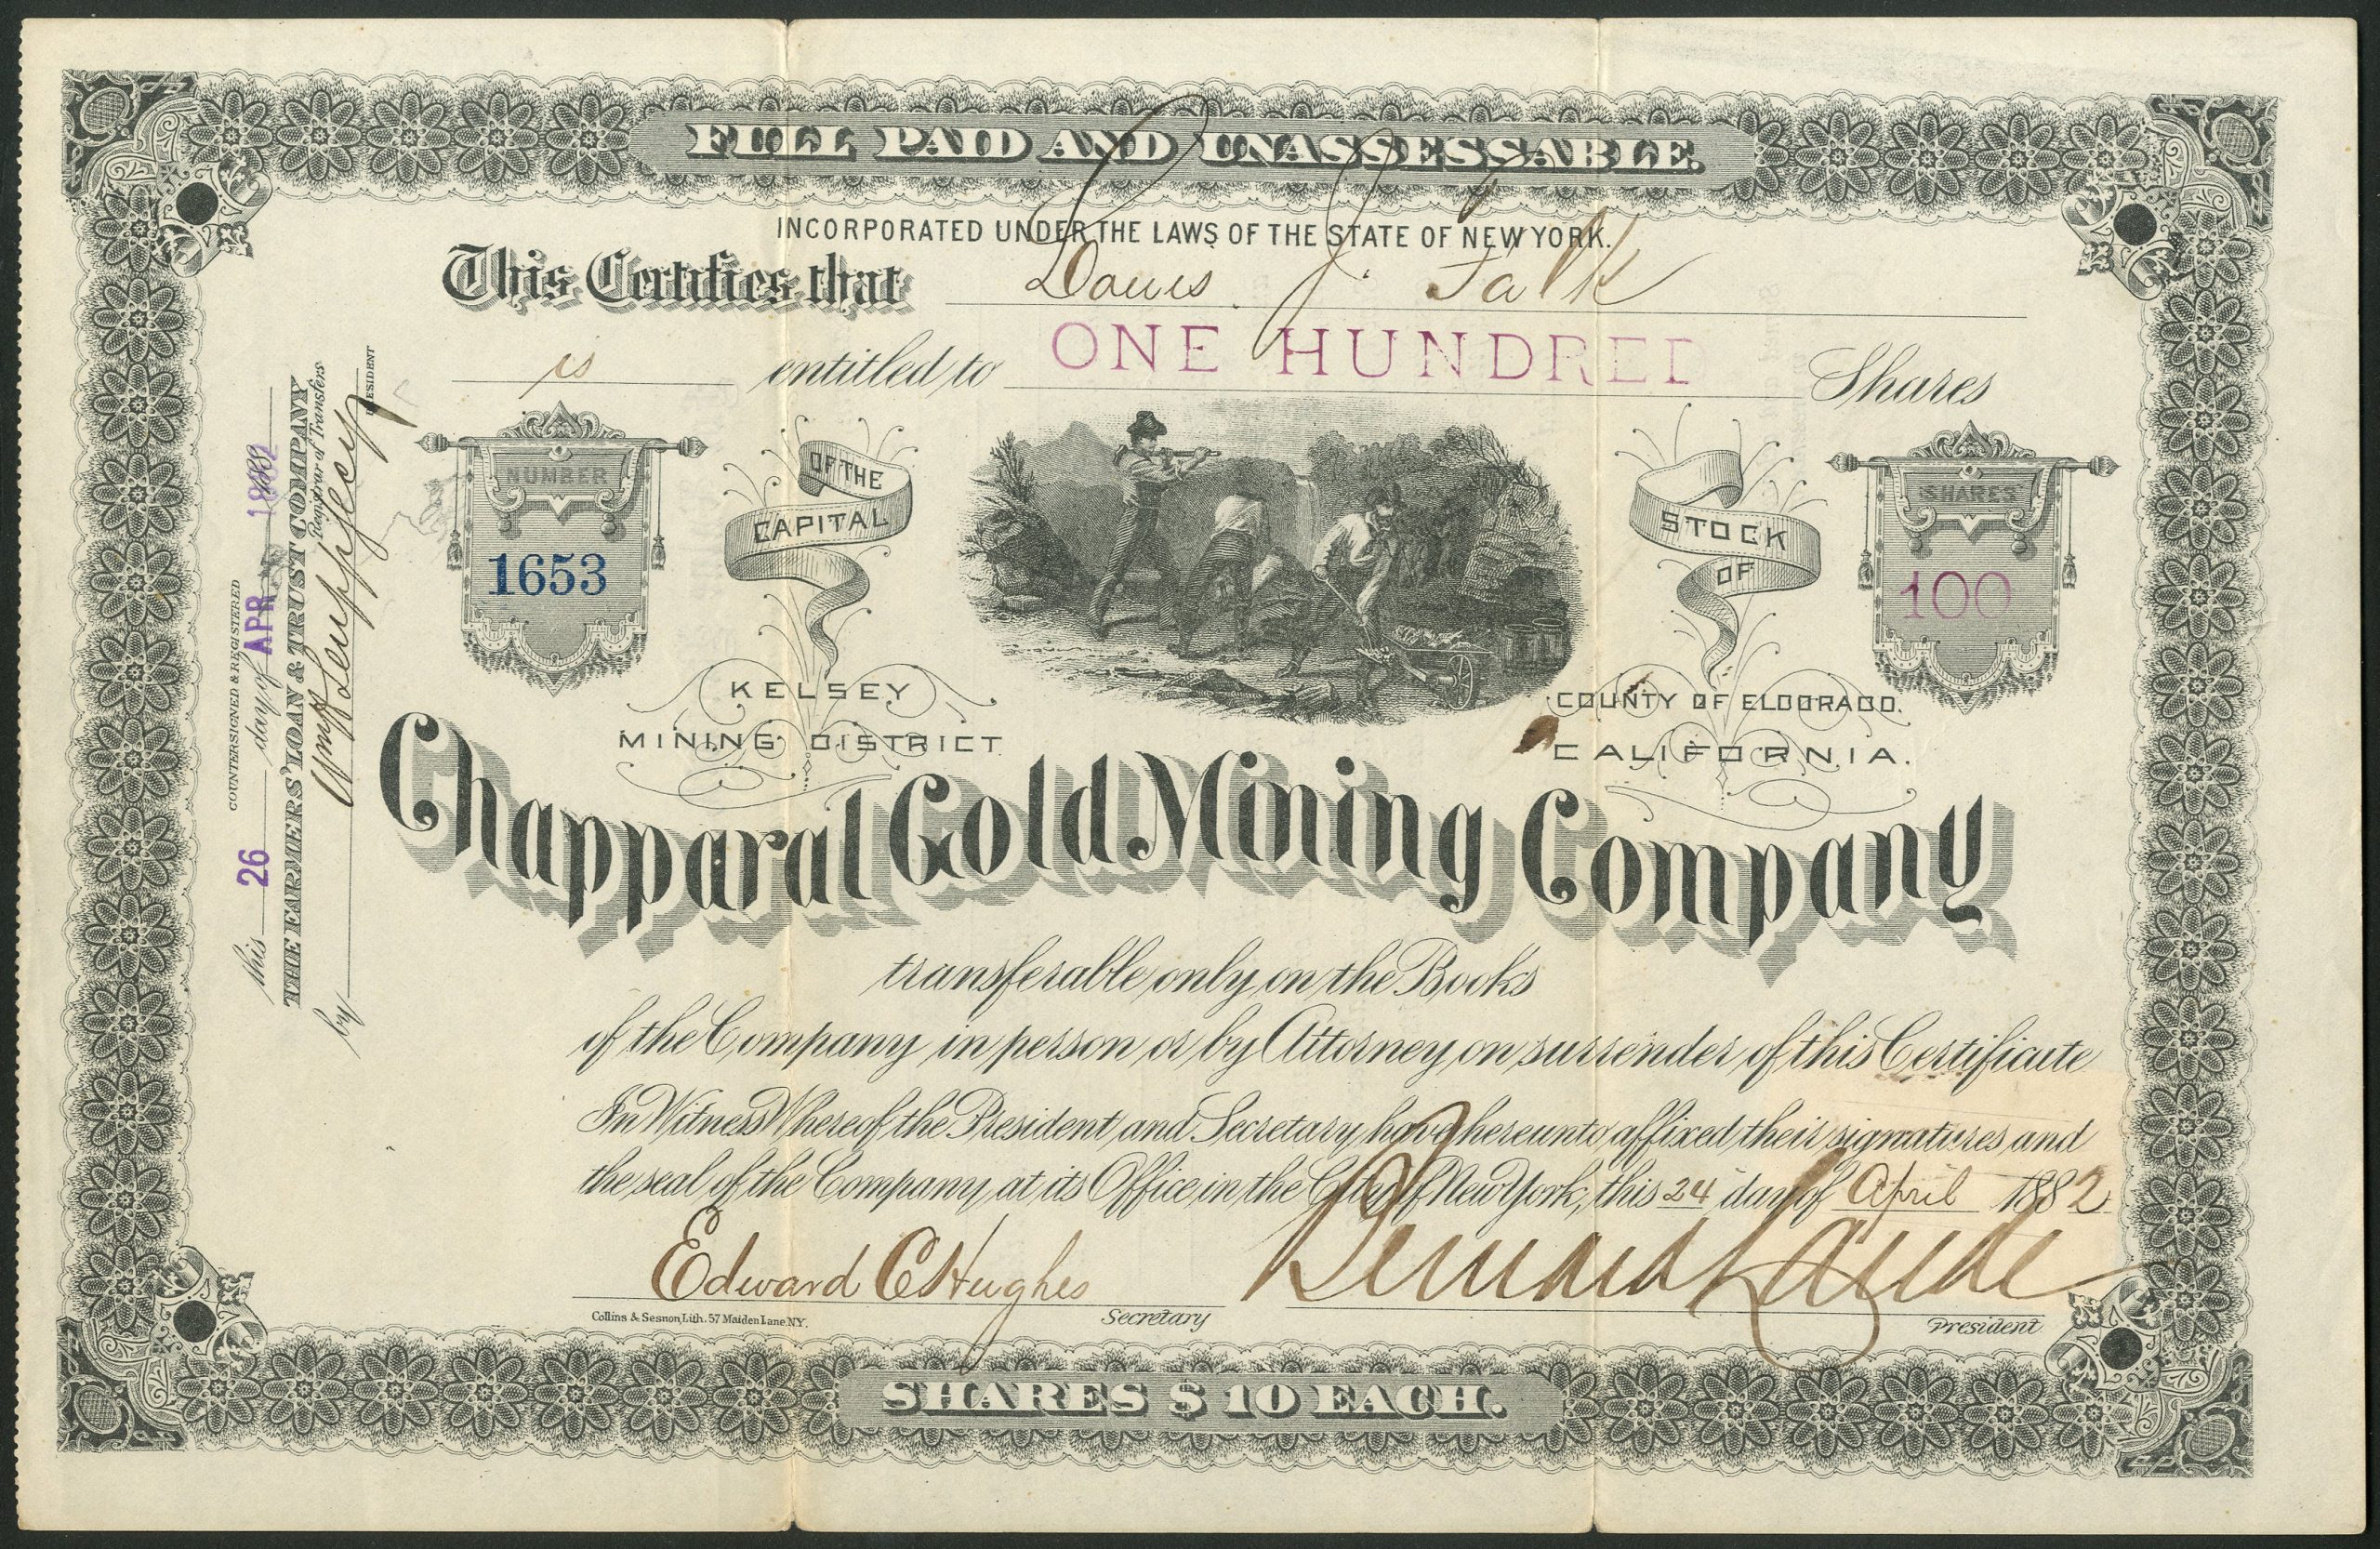 FULL PAID AND UNASSESSABLE.
INCORPORATED UNDER THE LAWS OF THE STATE OF NEW YORK.
This Certifies that J. Falk
is entitled to ONE HUNDRED Shares
NUMBER
1653
OF THE
CAPITAL
STOCK
OF
SHARES
100
KELSEY
MINING DISTRICT
COUNTY OF ELDORADO.
CALIFORNIA.
Chapparal Gold Mining Company
transferable only on the Books
of the Company in person or by Attorney on surrender of this Certificate
In Witness Whereof the President and Secretary have hereunto affixed their signatures and
the seal of the Company, at its Office in the City of New York, this 24 day of April 1882
Edward C Hughes
Secretary
President
Collins & Sesnon, Lith. 57 Maiden Lane N.Y.
SHARES $10 EACH.
COUNTERSIGNED & REGISTERED
this 26 day of APR 1882
THE FARMERS' LOAN & TRUST COMPANY
Registrar of Transfers
by
PRESIDENT